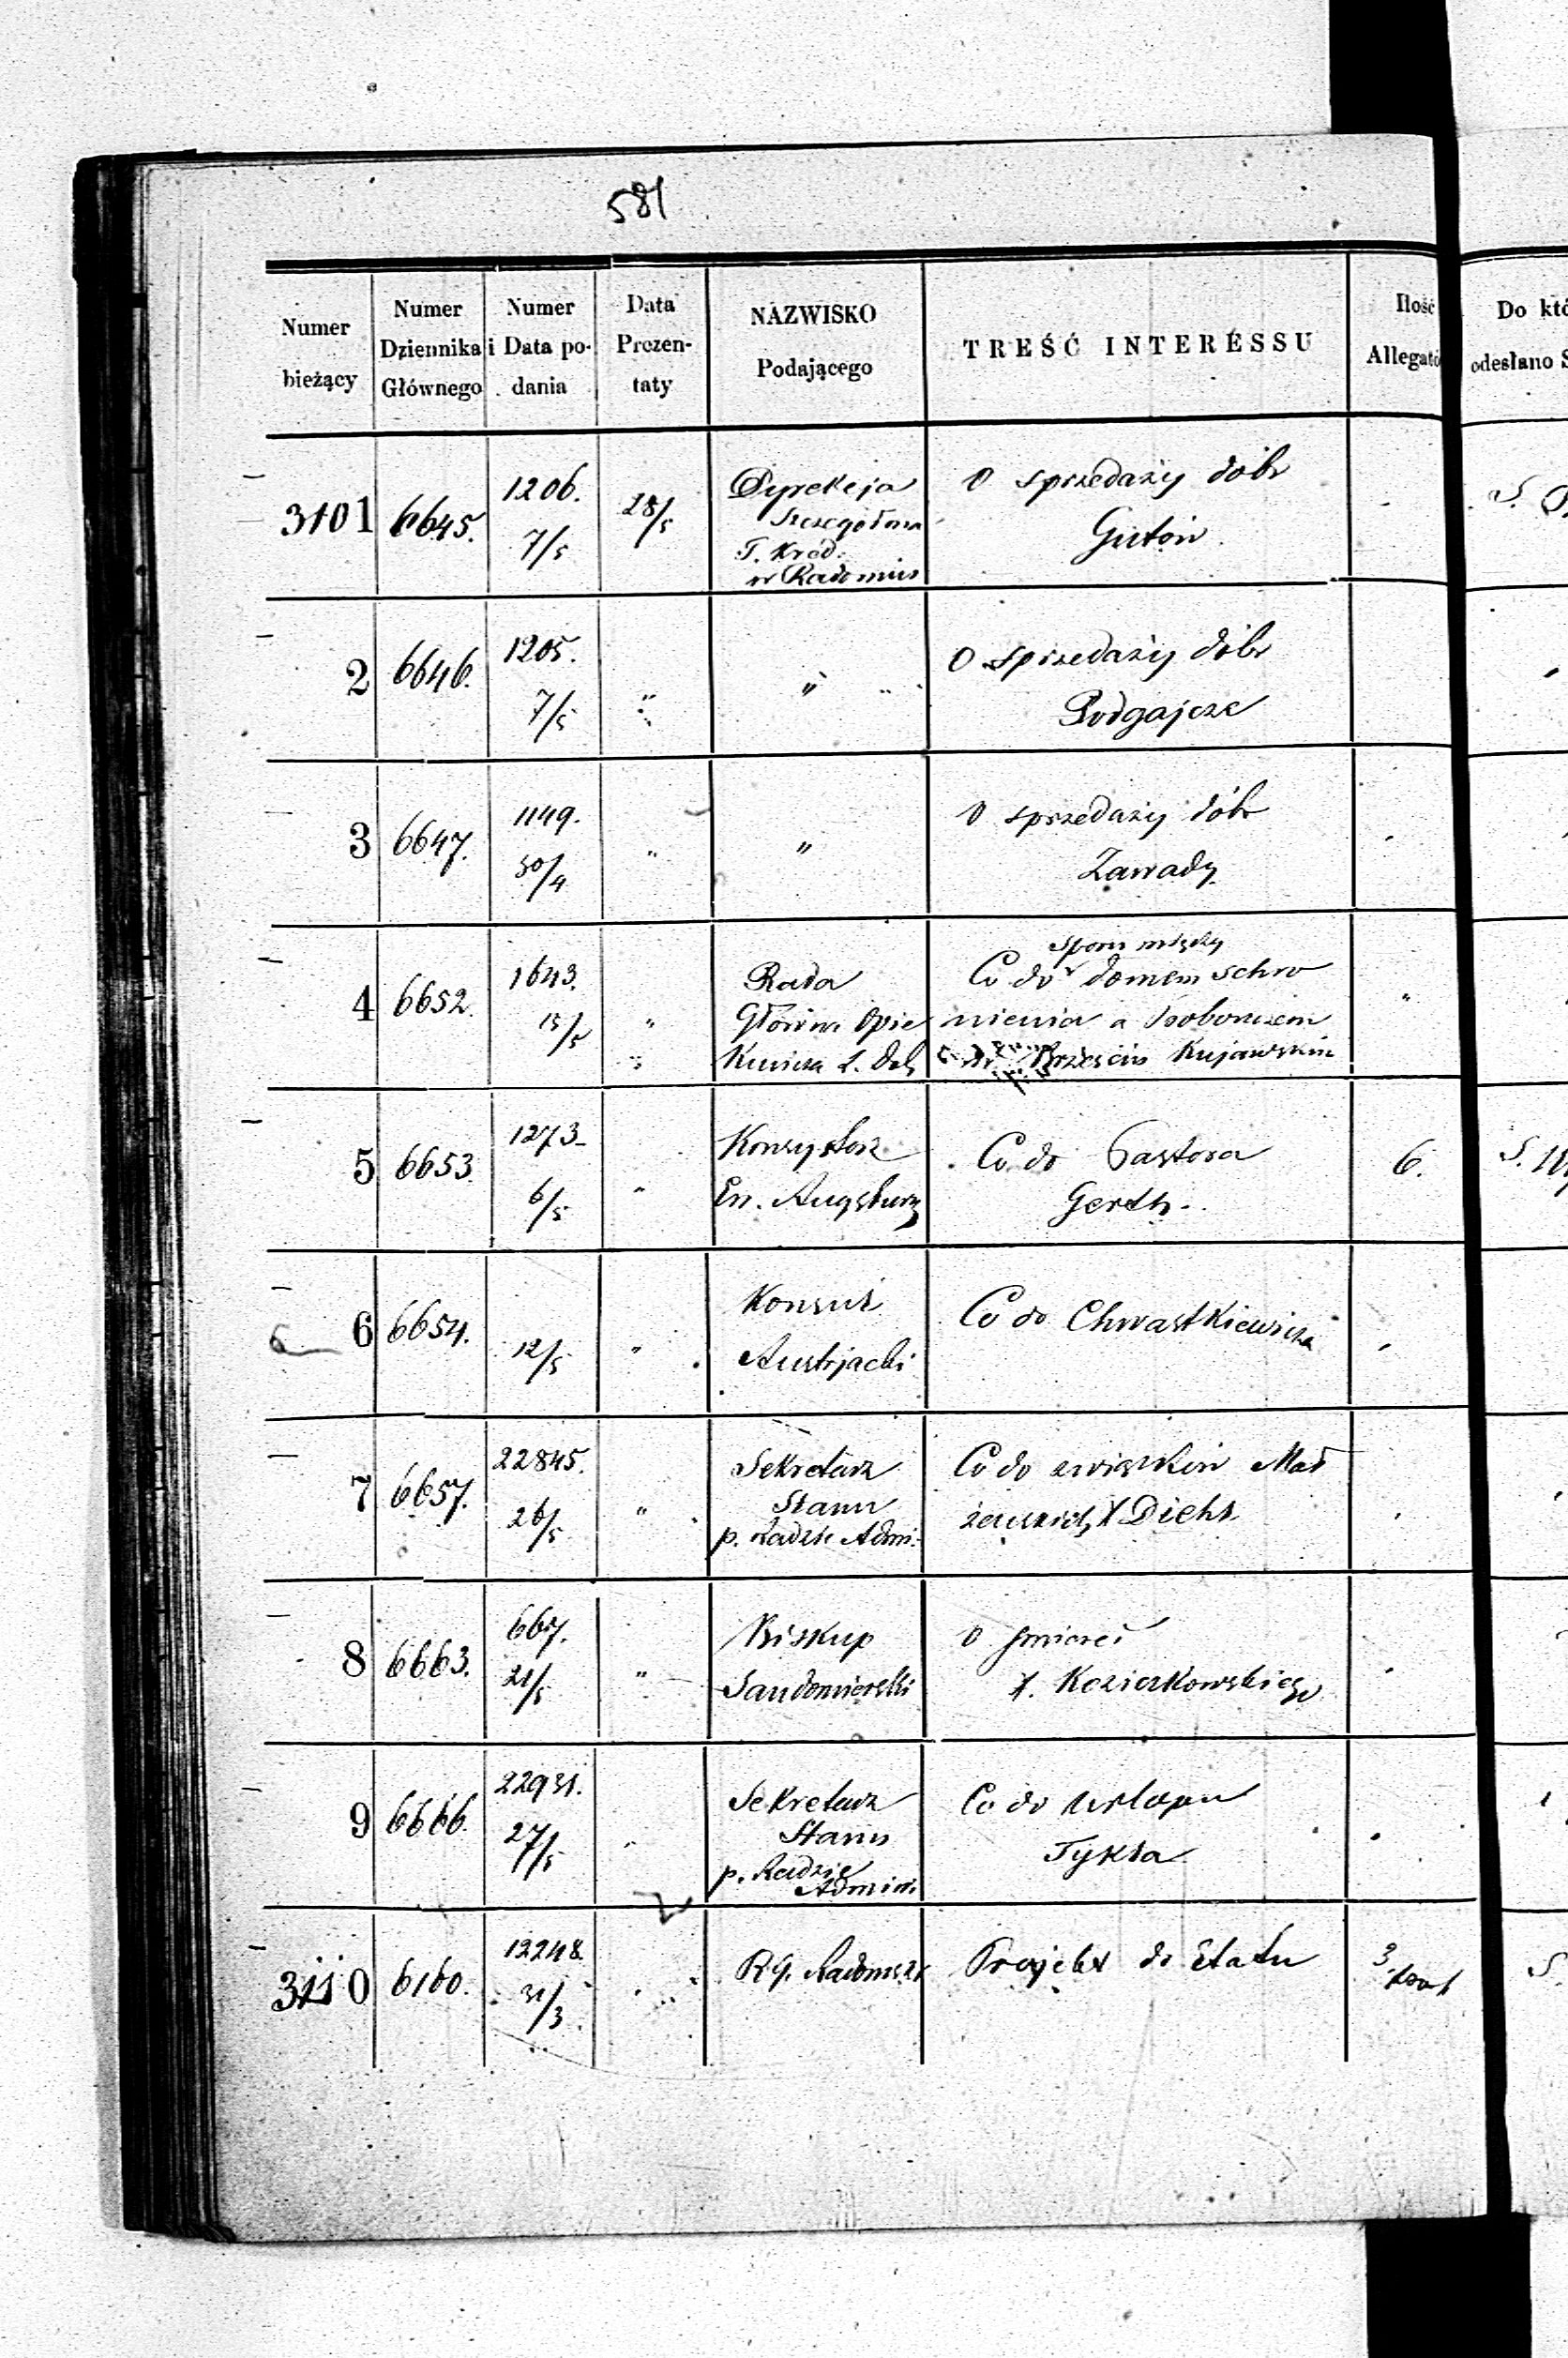 581
Numer bieżący | Numer Dziennika Głównego | Numer i Data podania | Data Prezentaty | NAZWISKO Podającego | TREŚĆ INTERESSU | Ilość Allegató | Do któ odesłano S
3101 | 6645. | 1206. 7/5 | 28/5 | Dyrekcja Szczegółowa T. Kred. w Radomiu | O sprzedaży dóbr Gutów | | S.
2 | 6646. | 1205. 7/5 | " | " | O sprzedaży dóbr Podgajcze
3 | 6647. | 1149. 30/4 | " | " | O sprzedaży dóbr Zawady
4 | 6652. | 1643. 15/5 | " | Rada Główna Opie | Co do sporu między domem schronienia a Proboszczem w Brześciu Kujawskim | "
5 | 6653. | 1273. 6/5 | " | Konsystorz Ew. Augsburg | Co do Pastora Gerth. | 6. | S.
6 | 6654. | 12/5 | " | Konsul Austrjacki | Co do Chwastkiewicza
7 | 6657. | 22845. 26/5 | " | Sekretarz Stanu p. Radzie Admi. | Co do związków Małżeńskich X Diehl
8 | 6663. | 667. 21/5 | " | Biskup Sandomierski | O śmierci X. Kozierkowskiego
9 | 6666. | 22931. 27/5 | " | Sekretarz Stanu p. Radzie Admini. | Co do urlopu Tykla
3110 | 6160. | 12248. 31/3 | " | R. G. Radomski | Projekt do Etatu | 3. | S.